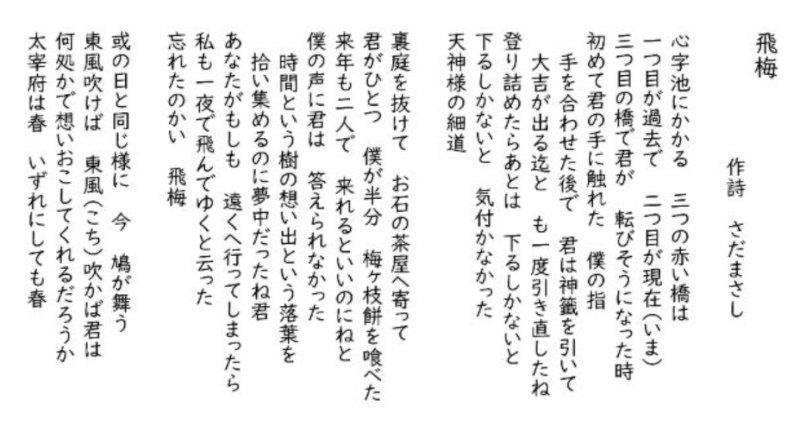 飛梅
作詩　さだまさし
心字池にかかる　三つの赤い橋は
一つ目が過去で　二つ目が現在(いま)
三つ目の橋で君が　転びそうになった時
初めて君の手に触れた　僕の指
手を合わせた後で　君は神籤を引いて
大吉が出る迄と　も一度引き直したね
登り詰めたらあとは　下るしかないと
下るしかないと　気付かなかった
天神様の細道
裏庭を抜けて　お石の茶屋へ寄って
君がひとつ　僕が半分　梅ヶ枝餅を喰べた
来年も二人で　来れるといいのにねと
僕の声に君は　答えられなかった
時間という樹の想い出という落葉を
拾い集めるのに夢中だったね君
あなたがもしも　遠くへ行ってしまったら
私も一夜で飛んでゆくと云った
忘れたのかい　飛梅
或の日と同じ様に　今　鳩が舞う
東風吹けば　東風(こち)吹かば君は
何処かで想いおこしてくれるだろうか
太宰府は春　いずれにしても春